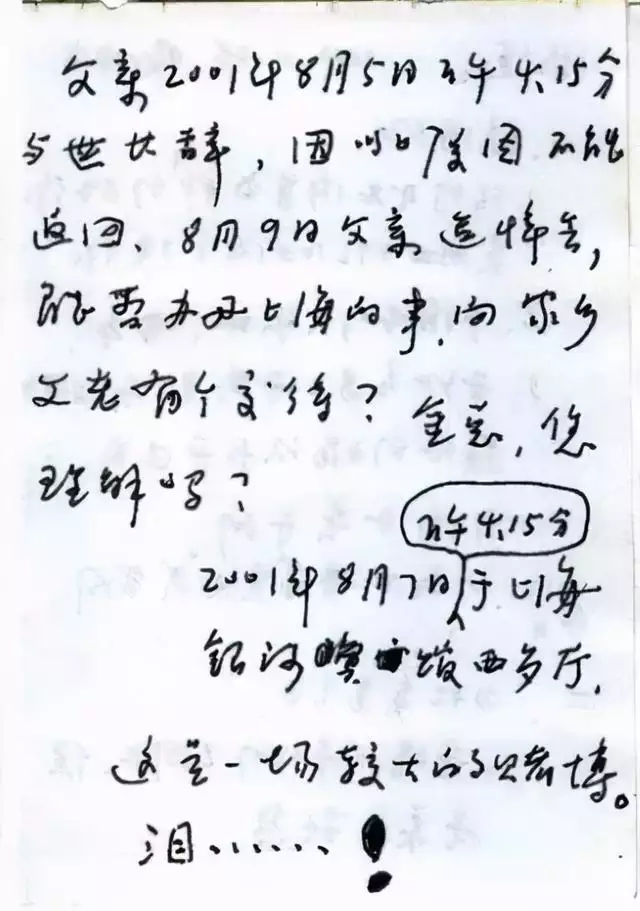 父亲2001年8月5日下午4点15分
与世长辞，因 不能
返回、8月9日父亲追悼会，
既要办好上海的事，向家乡
父老有个交待？金总，您
理解吗？
下午4点15分
2001年8月7日于上海
银河宾 西 厅．
这是一场较大的赌博。
泪……！